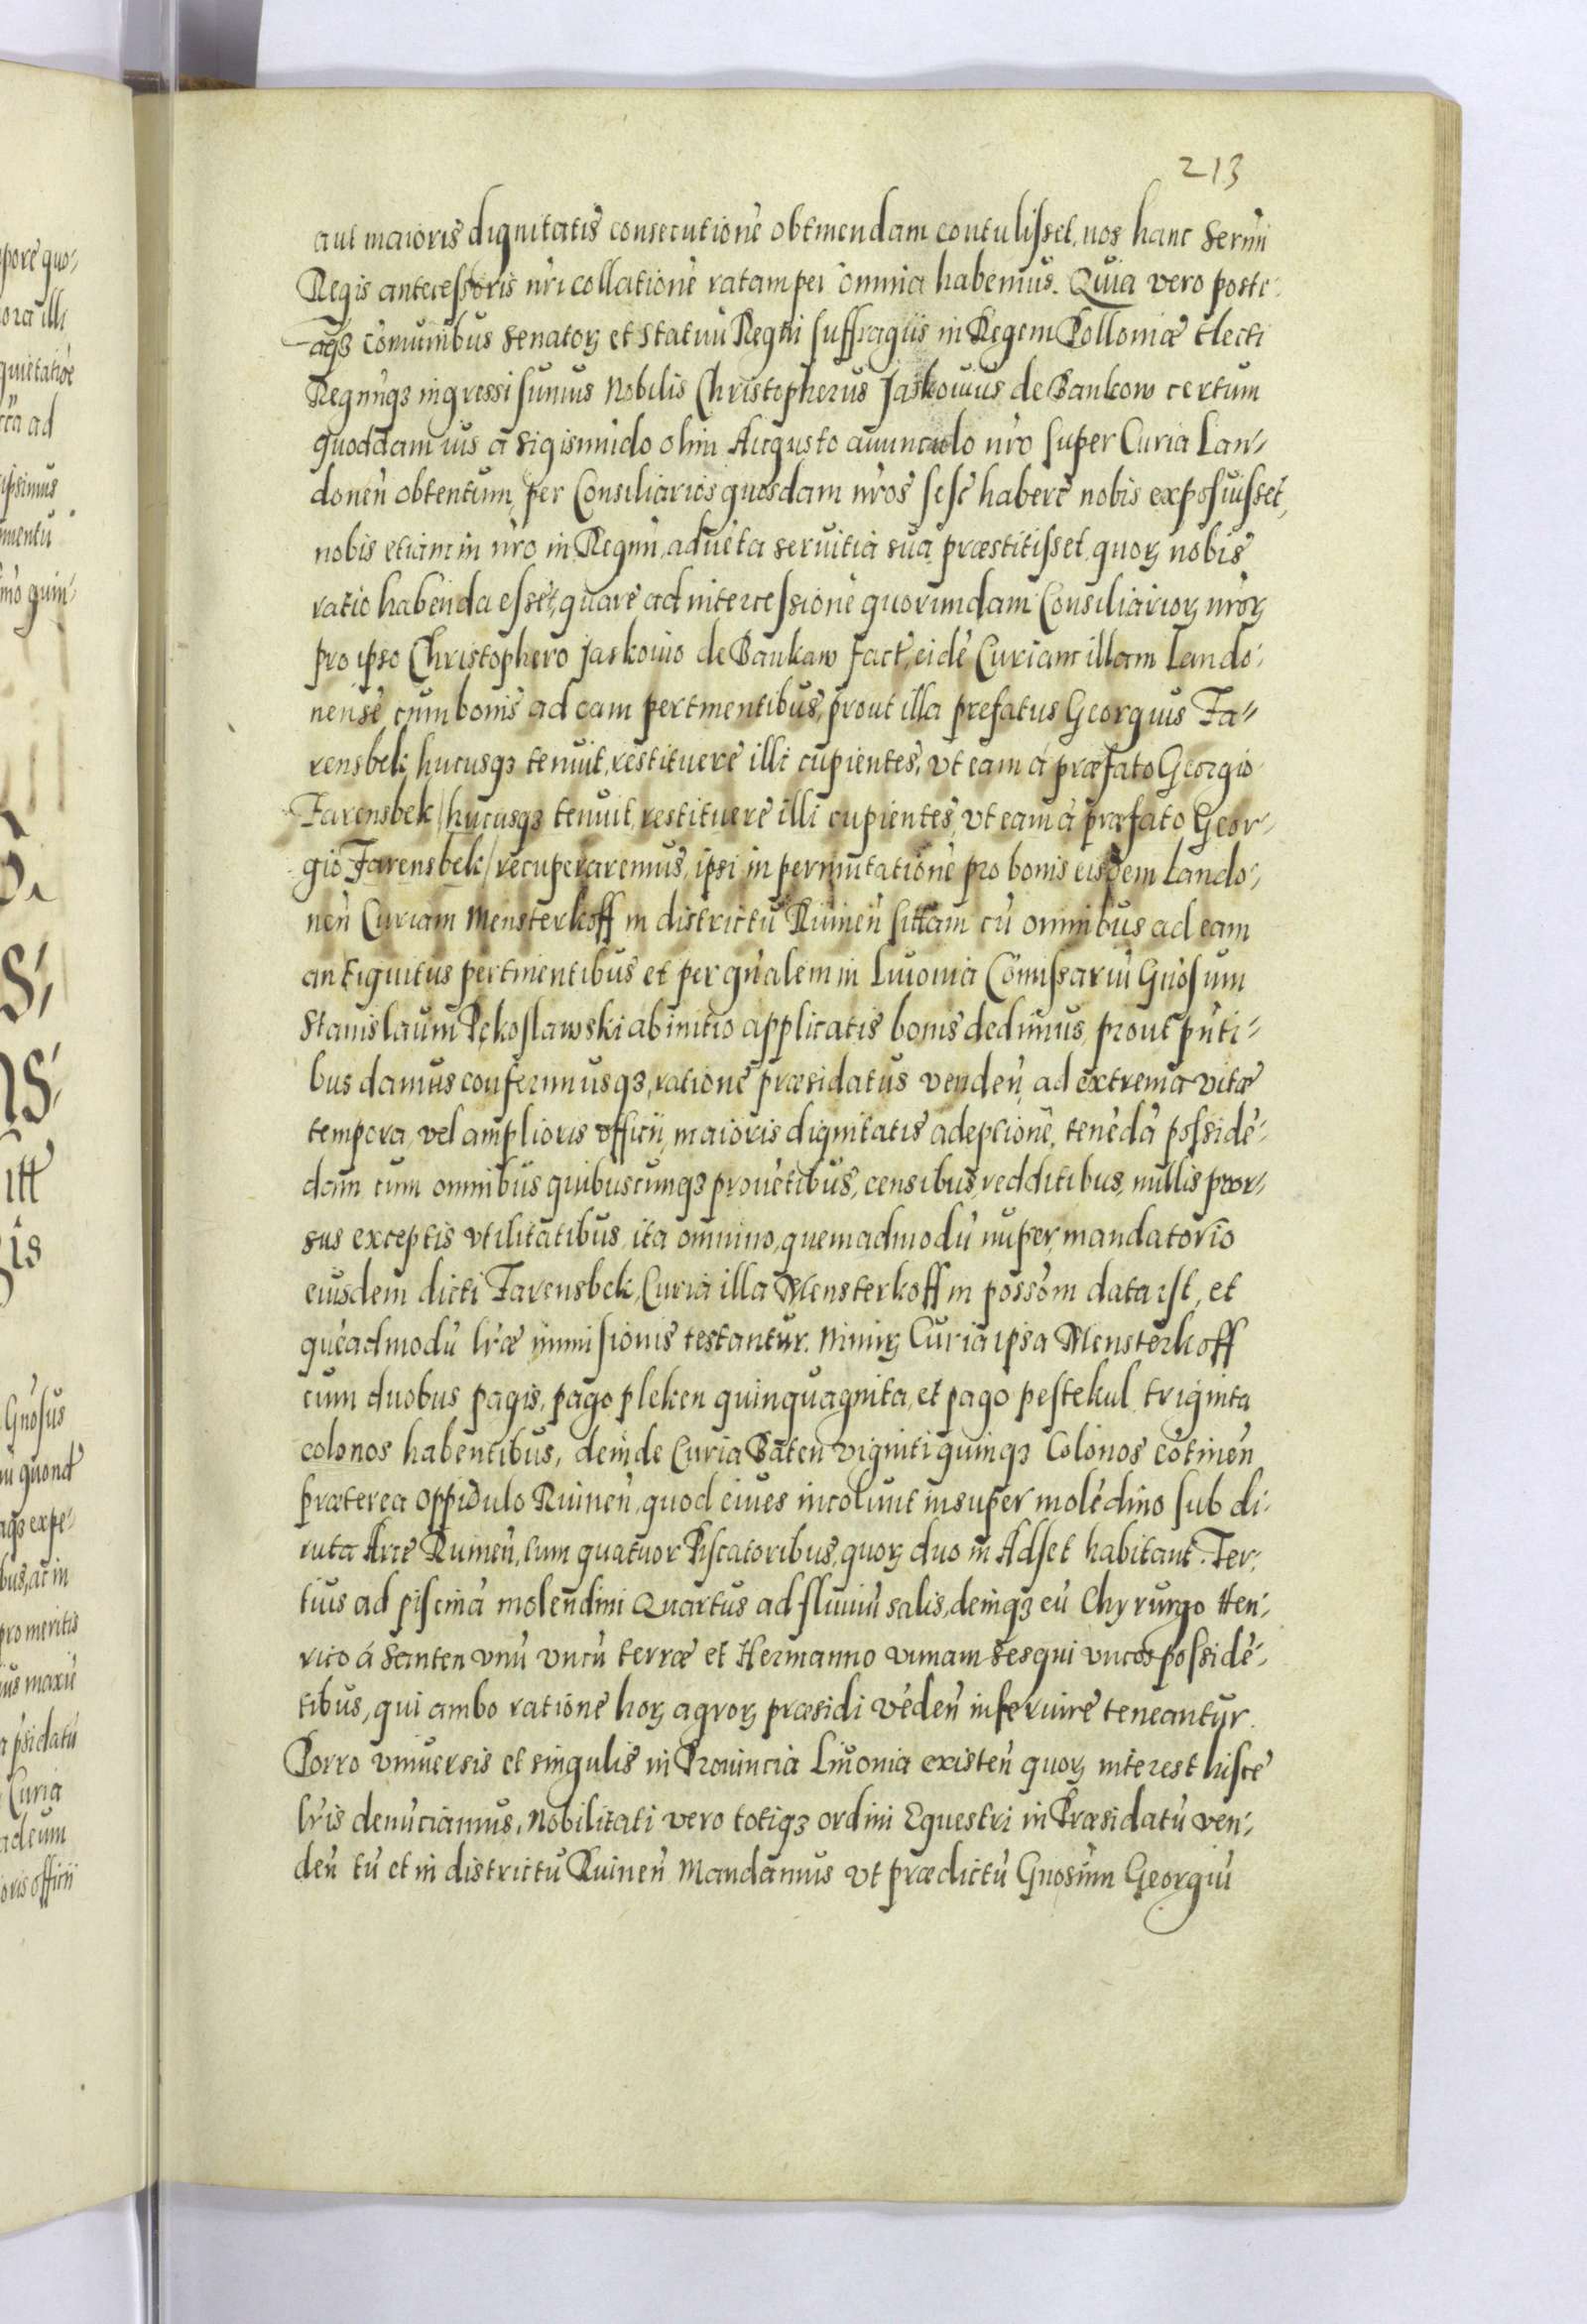 213
aut maioris dignitatis consecutionē obtinendam contulisset, nos hanc Sermi
Regis antecessoris nr̄i collationē ratam per omnia habemus. Quia vero poste-
aqꝫ com̄unibus Senatoꝝ et Statuū Regni suffragiis in Regem Polloniæ electi
Regnūqꝫ ingressi sumus Nobilis Christopherus Jaskouius de Bankow certum
quoddam ius a Sigismūdo olim Augusto auunculo nr̄o super Curia Lan-
donen̄ obtentum per Consiliarios quosdam nr̄os sese haberē nobis exposuisset,
nobis etiam in nr̄o in Regnū aduētā seruitia sua præstitisset, quoꝝ nobis
ratio habenda esset, quarē ad intercessionē quorundam Consiliarioꝝ nr̄oꝝ
pro ipso Christophero Jaskouio de Bankaw fact, eidē Curiam illam Lando-
nensē cum bonis ad eam pertinentibus, prout illa prefatus Georgius Fa-
rensbek hucusqꝫ tenuit, restituerē illi cupientes, vt eam á præfato Georgio
Farensbek / hucusqꝫ tenuit, restituerē illi cupientes, vt eam à præfato Geor-
gio Farensbek / recuperaremus, ipsi in permutationē pro bonis eisdem Lando-
nen̄ Curiam Mensterkoff in districtu Ruinen̄ sittam cū omnibus ad eam
antiquitus pertinentibus et per gn̄alem in Liuonia Com̄issariū Gn̄osum
Stanislaum Pękoslawski ab initio applicatis bonis dedimus, prout pn̄ti-
bus damus conferimusqꝫ, rationē præsidatus venden̄ ad extrema vitæ
tempora, vel amplioris officii, maioris dignitatis adeptionē, tenēdā possidē-
dam cum omnibus quibuscunqꝫ prouētibus, censibus, redditibus, nullis pror-
sus exceptis vtilitatibus, ita omnino, quemadmodū nuper mandatorio
eiusdem dicti Farensbek, Curia illa Mensterkoff in possom̄ data est, et
quēadmodū lr̄æ immisionis testantur. Nimiꝝ Curia ipsa Mensterkoff
cum duobus pagis, pago pleken quinquaginta, et pago pestekul triginta
colonos habentibus, deinde Curia Baten viginti quinqꝫ Colonos cōtinen̄
præterea oppidulo Ruinen̄, quod ciues incolunt insuper molēdino sub di-
ruta Arce Ruinen̄, cum quatuor Piscatoribus, quoꝝ duo in Adset habitant. Ter-
tius ad piscinā molendini Quartus ad fluuiū salis, deinqꝫ cū Chyrurgo Hen-
rico á Santen vnū vncū terræ et Hermanno vnnam sesqui vncos possidē-
tibus, qui ambo rationē hoꝝ agroꝝ præsidi vēden̄ inseruirē teneantur.
Porro vniuersis et singulis in Prouincia Liuonia existen̄ quoꝝ interest hisce
lr̄is denūciamus, Nobilitati vero totiqꝫ ordini Equestri in Præsidatū ven-
den̄ tū et in districtū Ruinen̄ Mandamus vt prædictū Gnosum Georgiū